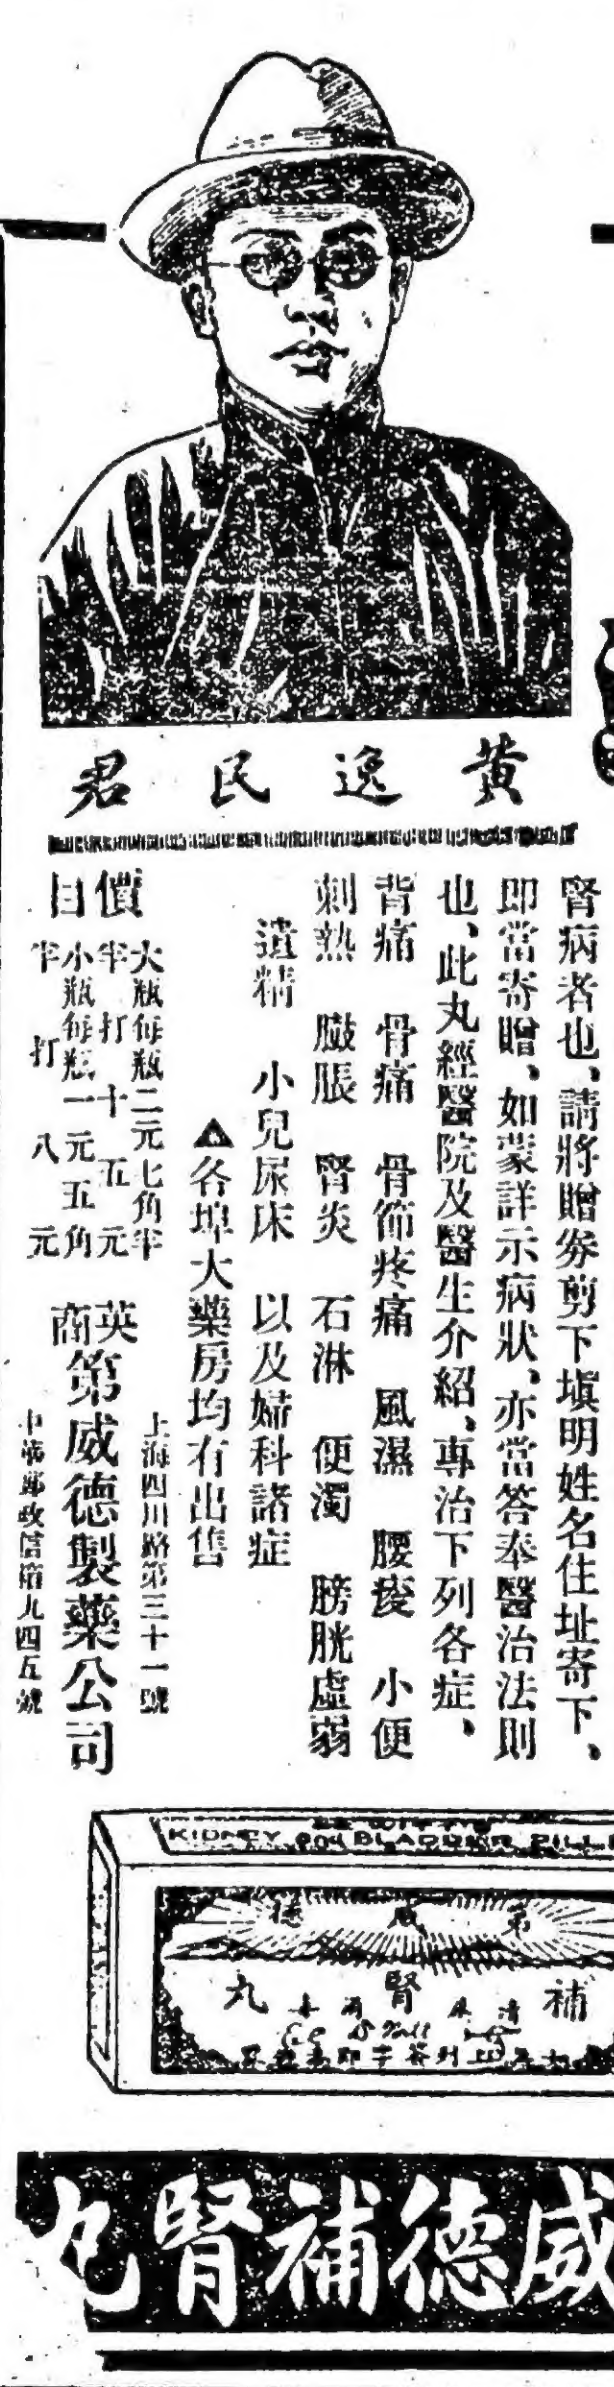 黃逸民君
腎病者也、請將贈券剪下塡明姓名住址寄下、
即當寄贈、如蒙詳示病狀、亦當答奉醫治法則
也、此丸經醫院及醫生介紹、專治下列各症、
背痛 骨痛 骨節疼痛 風濕 腰痠 小便
刺熱 臌脹 腎炎 石淋 便濁 膀胱虛弱
遺精 小兒尿床 以及婦科諸症
▲各埠大藥房均有出售
價目
大瓶每瓶二元七角半
半打十五元
小瓶每瓶一元五角
半打八元
上海四川路第三十一號
英商第威德製藥公司
中華郵政信箱九四五號
KIDNEY and BLADDER PILLS
第威德
補腎丸
威德補腎丸